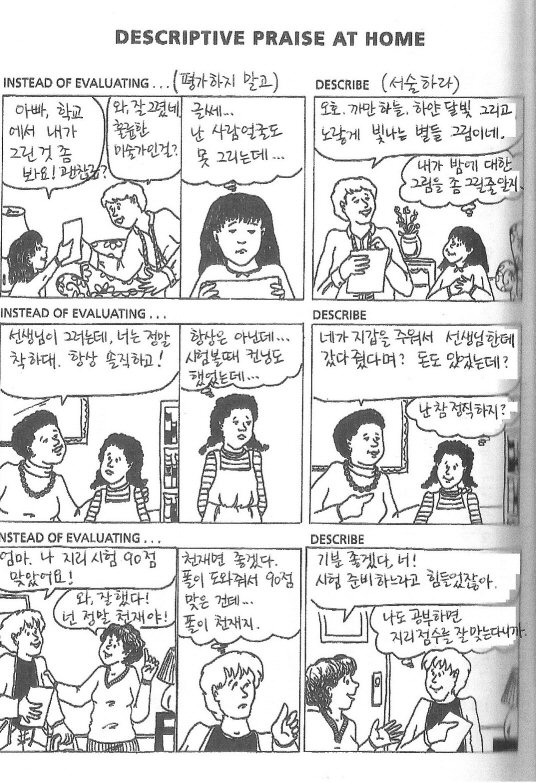 DESCRIPTIVE PRAISE AT HOME
INSTEAD OF EVALUATING . . . (평가하지 말고)
아빠, 학교
에서 내가
그린 것 좀
봐요! 괜찮죠?
와, 잘 그렸네
훌륭한
미술가인걸?
글쎄...
난 사람 얼굴도
못 그리는데...
DESCRIBE (서술하라)
오호. 까만 하늘, 하얀 달빛 그리고
노랗게 빛나는 별들 그림이네.
내가 밤에 대한
그림을 좀 그릴줄알지.
INSTEAD OF EVALUATING . . .
선생님이 그러는데, 너는 정말
착하대. 항상 솔직하고!
항상은 아닌데...
시험볼때 컨닝도
했었는데...
DESCRIBE
네가 지갑을 주워서 선생님한테
갖다 줬다며? 돈도 있었는데?
난 참 정직하지?
NSTEAD OF EVALUATING . . .
엄마. 나 지리 시험 90점
맞았어요!
와, 잘했다!
넌 정말 천재야!
천재면 좋겠다.
폴이 도와줘서 90점
맞은 건데...
폴이 천재지.
DESCRIBE
기분 좋겠다, 너!
시험 준비하느라고 힘들었잖아.
나도 공부하면
지리점수를 잘 맞는다니까.